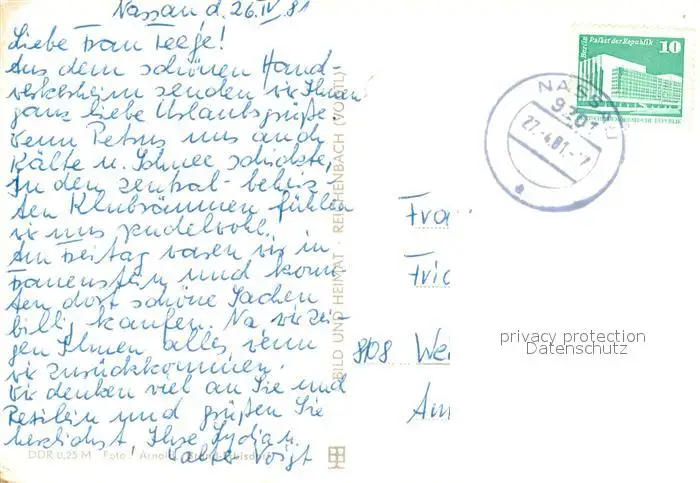 Nassau d. 26.IV.81
Liebe Frau Feege!
Aus dem schönen Hand-
werkerheim senden wir Ihnen
ganz liebe Urlaubsgrüße.
Wenn Petrus uns auch
Kälte u. Schnee schickte,
In den zentral-beheiz-
ten Klubräumen fühlen
wir uns pudelwohl.
Am Freitag waren wir in
Frauenstein und konn-
ten dort schöne Sachen
billig kaufen. Na, wir zei-
gen Ihnen alles, wenn
wir zurückkommen.
Wir denken viel an Sie und
und grüßen Sie
herzlichst, Ihre Lydia u.
Walter Voigt
DDR 0,25 M Foto: Arnold
BILD UND HEIMAT · REICHENBACH (VOGTL)
Berlin Palast der Republik 10
DEUTSCHE DEMOKRATISCHE REPUBLIK
NASSAU
9201
27.-4.81.-7
a
Frau
Frie
808 Wei
Am
privacy protection
Datenschutz